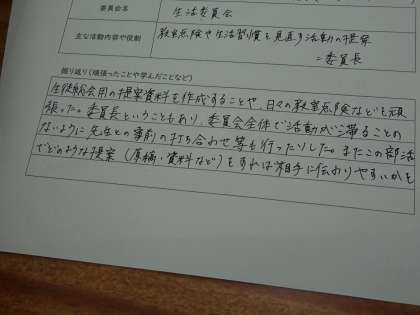 委員会名
生活委員会
主な活動内容や役割
教室点検や生活習慣を見直す活動の提案
:委員長
振り返り(頑張ったことや学んだことなど)
生徒総会用の提案資料を作成することや、日々の教室点検なども頑
張った。委員長ということもあり、委員会全体で活動が滞ることの
ないように先生との事前の打ち合わせ等も行ったりした。またこの部活
でどのような提案(原稿・資料など)をすれば相手に伝わりやすいかを